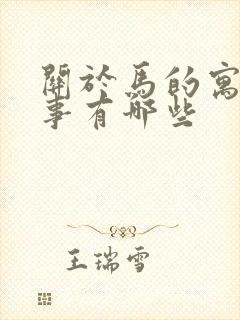 關於馬的寓
事有哪些
王瑞雪